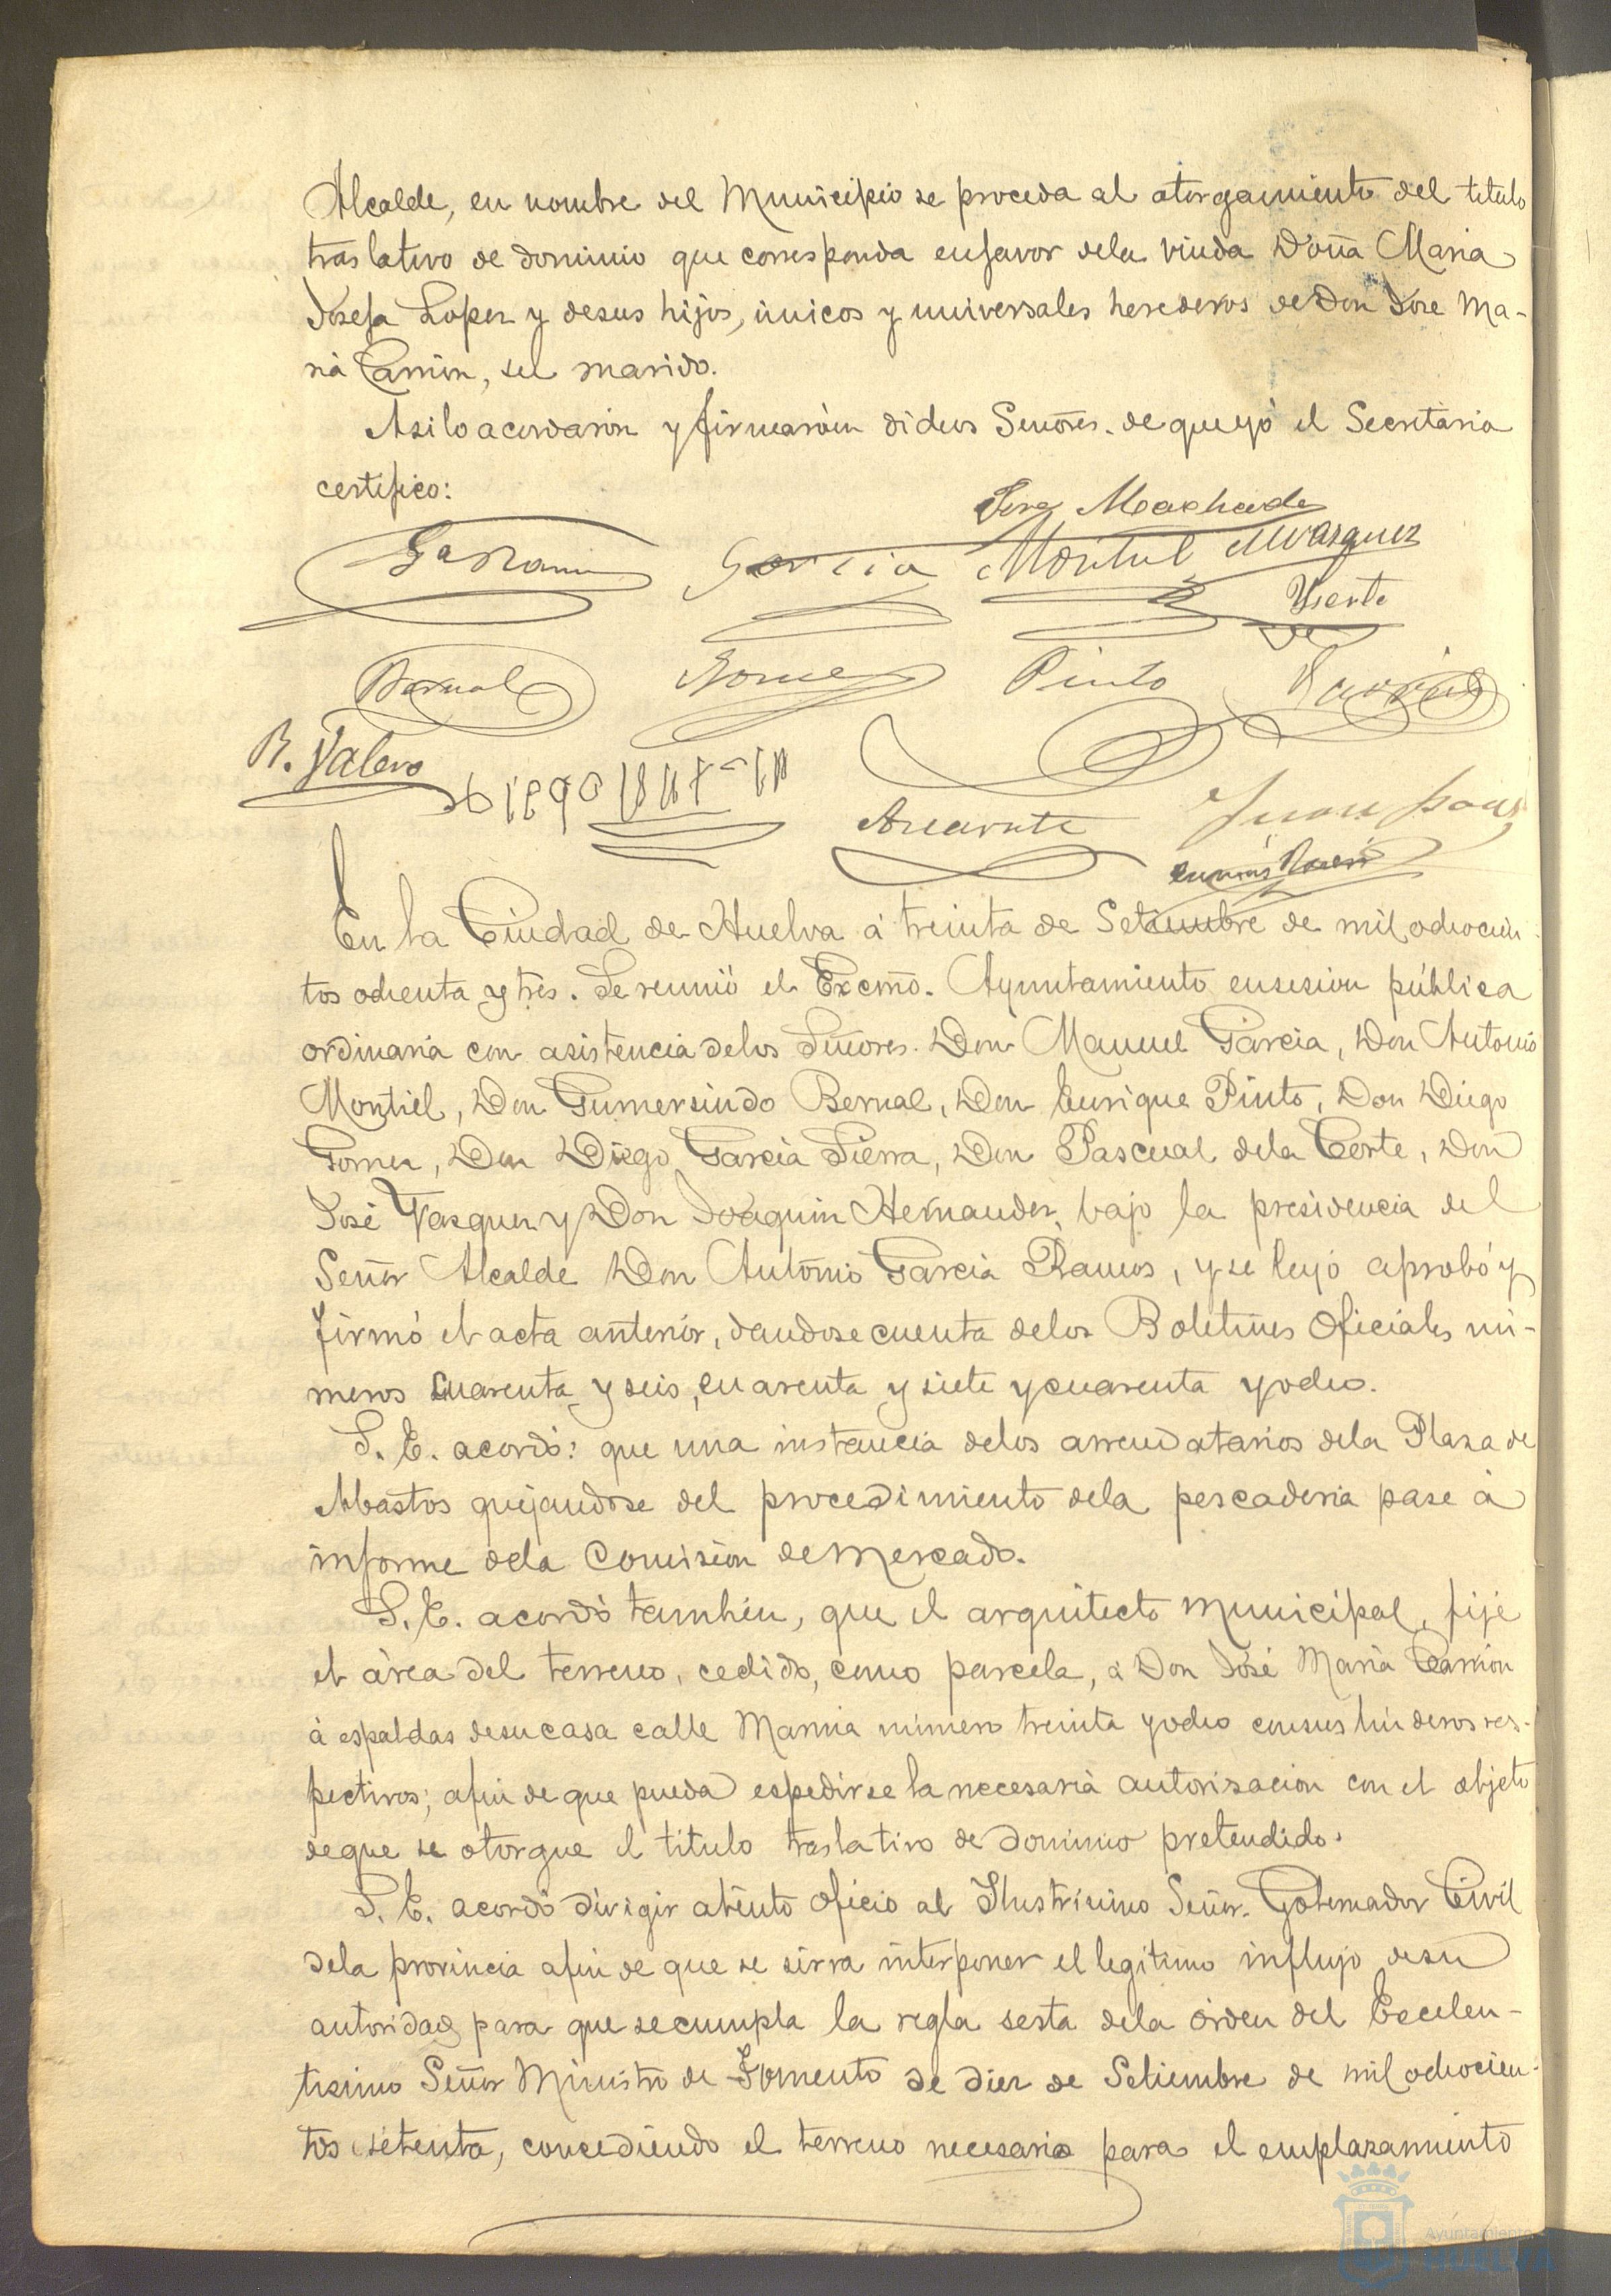 Alcalde, en nombre del Municipio se proceda al otorgamiento del titulo
traslativo de dominio que corresponda enfavor dela viuda Doña Maria
Josefa Lopez y desus hijos, únicos y universales herederos de Don Jose Ma-
ria Carrion, su marido.
Asilo acordaron y firmaron dichos Señores. de que yó el Secretario
certifico:
Jose Machado
Ga Ramos García Montiel Vazquez
Bernal Gomez Pinto
R. Valero
Juan
En la Ciudad de Huelva á treinta de Setiembre de mil ochocien-
tos ochenta y tres. Se reunió el Excmo. Ayuntamiento ensesion pública
ordinaria con asistencia delos Señores. Don Manuel Garcia, Don Antonio
Montiel, Don Gumersindo Bernal, Don Enrique Pinto, Don Diego
Gomez, Don Diego Garcia Sierra, Don Pascual dela Corte, Don
José Vazquez y Don Joaquin Hernandez, bajo la presidencia del
Señor Alcalde Don Antonio Garcia Ramos, y se leyó aprobó y
firmó el acta anterior, dandose cuenta delos Boletines Oficiales nú-
meros cuarenta y seis, cuarenta y siete y cuarenta y ocho.
S. E. acordó: que una instancia delos arrendatarios dela Plaza de
Abastos quejandose del procedimiento dela pescaderia pase á
informe dela Comision de Mercado.
S. E. acordó tambien, que el arquitecto Municipal, fije
el área del terreno, cedido, como parcela, á Don José Maria Carrion
á espaldas desu casa calle Marina número treinta y ocho consus linderos res-
pectivos; afin de que pueda espedirse la necesaria autorizacion con el objeto
deque se otorgue el titulo traslativo de dominio pretendido.
S. E. acordó dirigir atento oficio al Ilustrisimo Señor. Gobernador Civil
dela provincia afin de que se sirva interponer el legitimo influjo desu
autoridad para que secumpla la regla sesta dela órden del Escelen-
tisimo Señor Ministro de Fomento de diez de Setiembre de mil ochocien-
tos setenta, concediendo el terreno necesario para el emplazamiento
Ayuntamiento
HUELVA